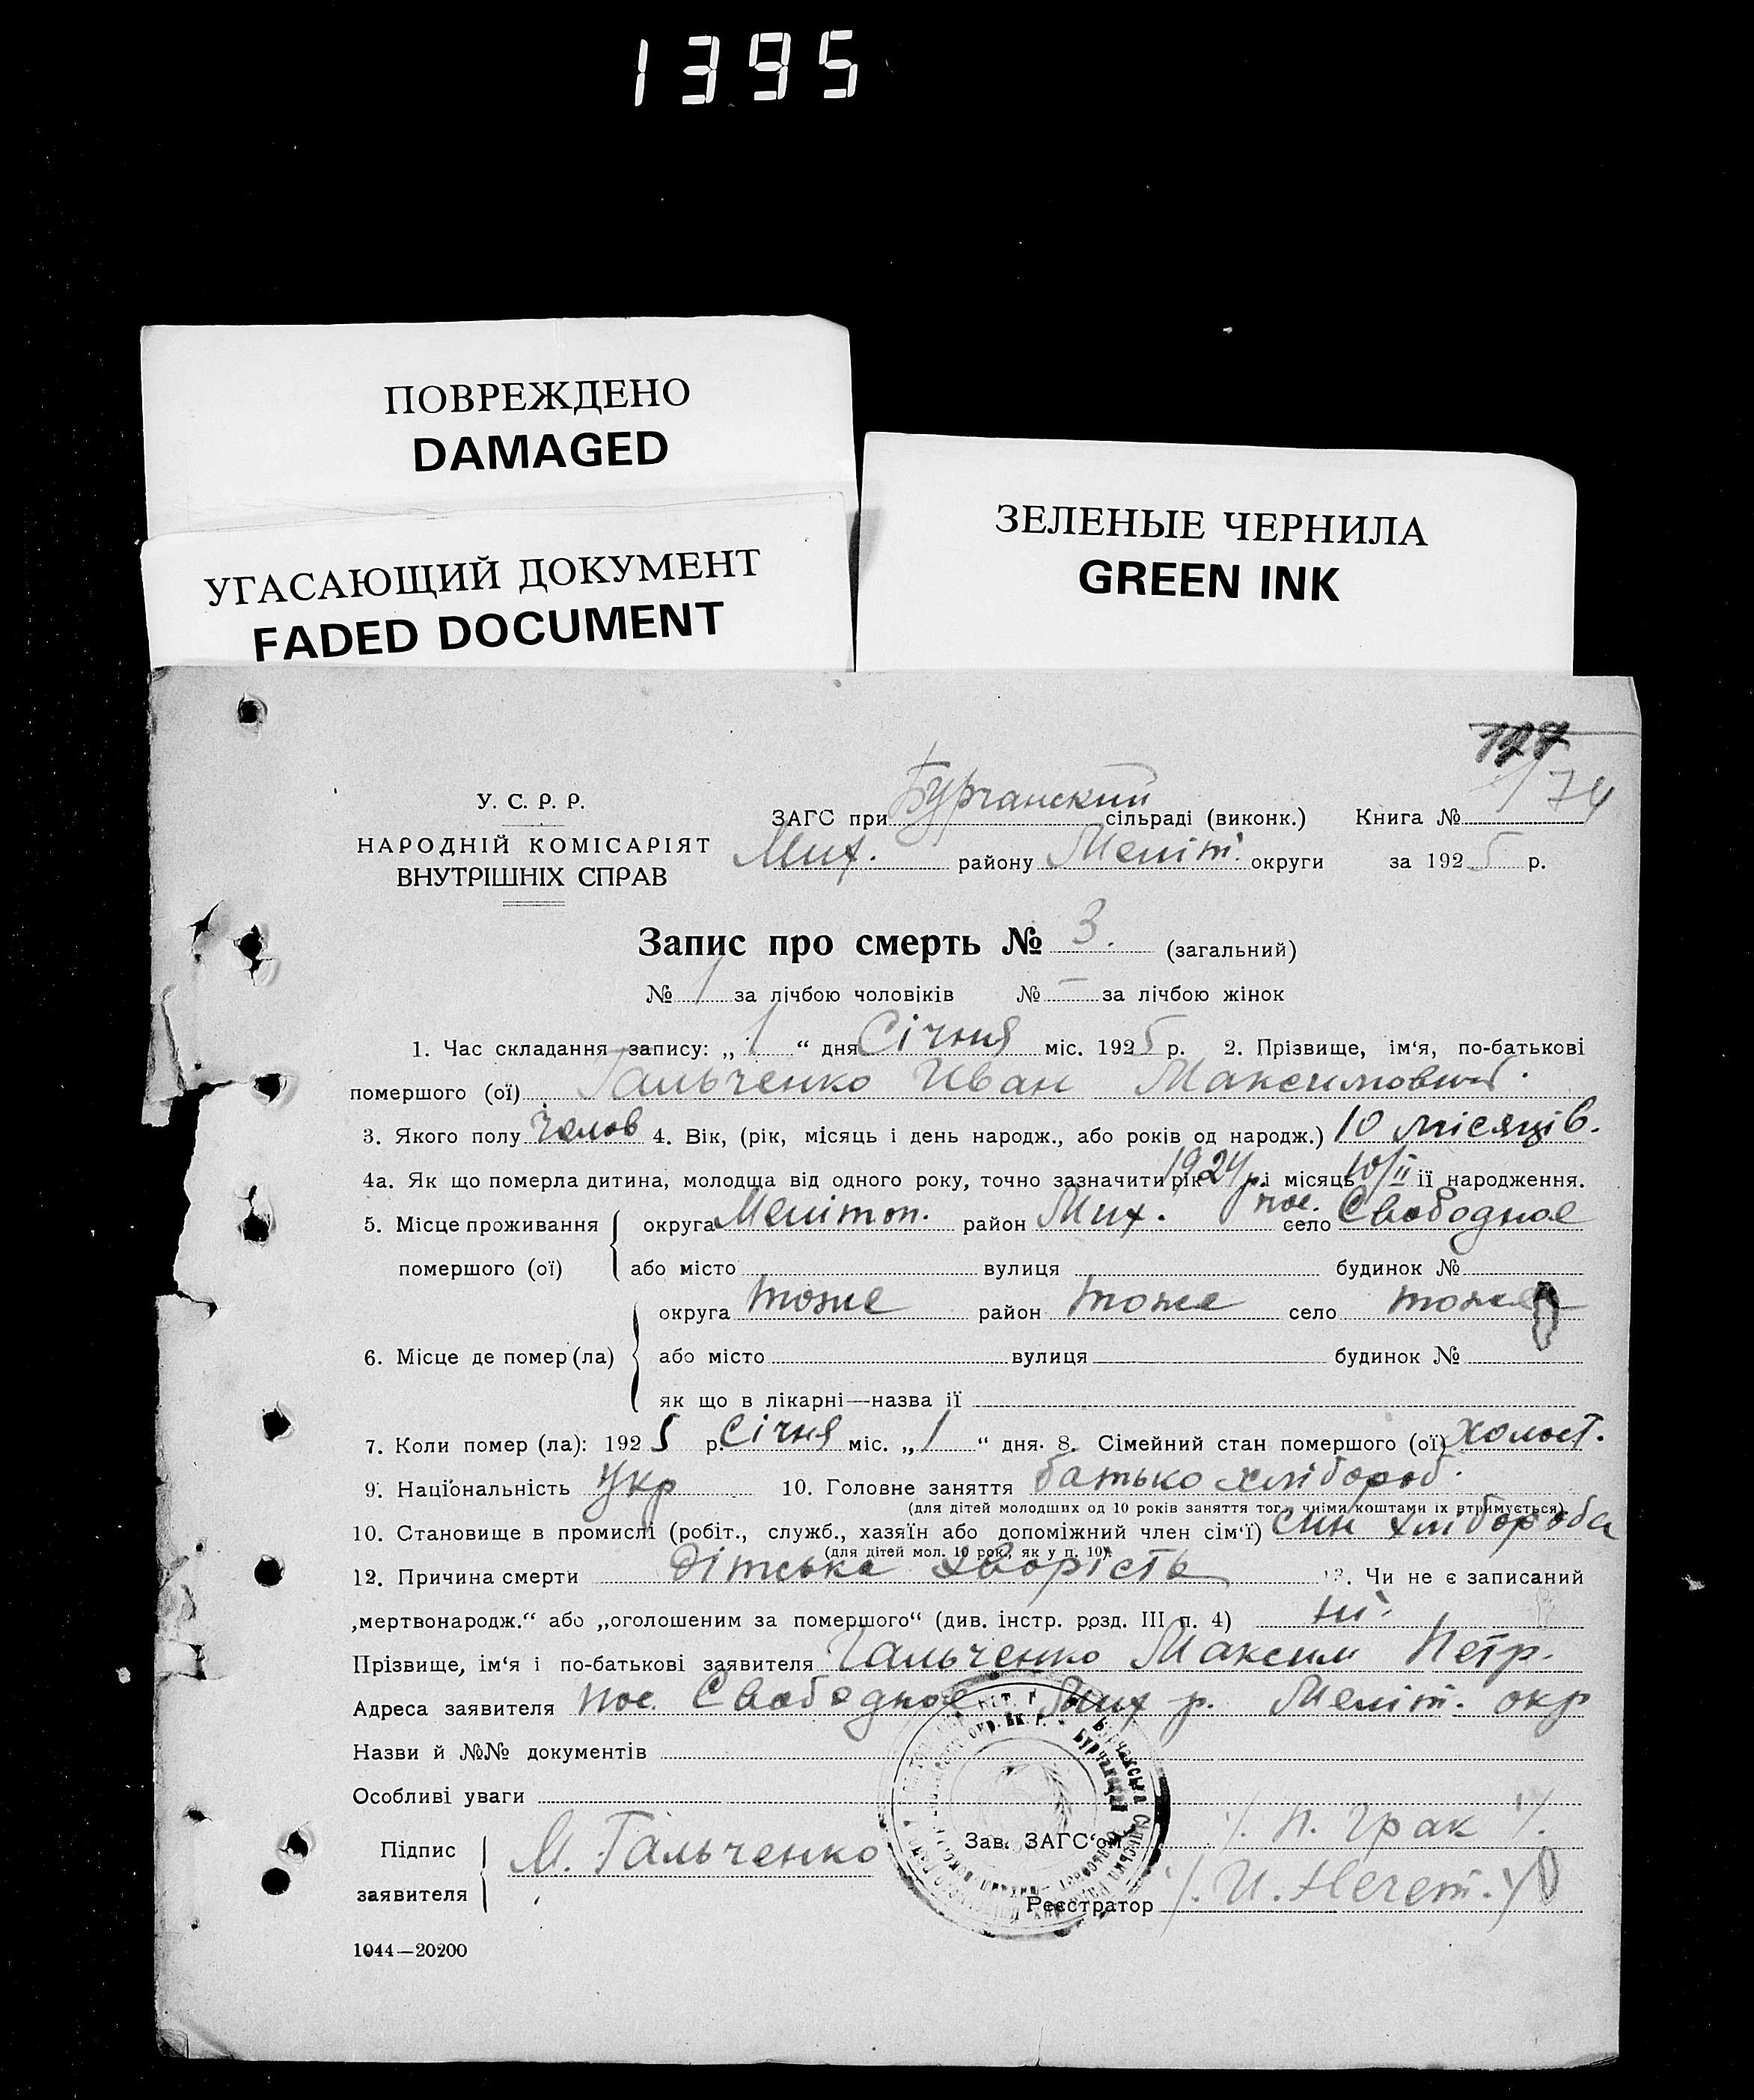 1395
ПОВРЕЖДЕНО
DAMAGED
УГАСАЮЩИЙ ДОКУМЕНТ
FADED DOCUMENT
ЗЕЛЕНЫЕ ЧЕРНИЛА
GREEN INK
У. С. Р. Р.
НАРОДНІЙ КОМІСАРІЯТ
ВНУТРІШНІХ СПРАВ
ЗАГС при Бурчанский сільраді (виконк.) Книга № 1/74
Мих. району Меліт. округи за 1925 р.
Запис про смерть № 3. (загальний)
№ 1 за лічбою чоловіків № – за лічбою жінок
1. Час складання запису: „ 1 “ дня Січня міс. 1925 р. 2. Прізвище, ім‘я, по-батькові
помершого (ої) Гальченко Иван Максимович.
3. Якого полу Челов 4. Вік, (рік, місяць і день народж., або років од народж.) 10 місяців.
4а. Як що померла дитина, молодща від одного року, точно зазначити рік 1924 р. і місяць 10/II ії народження.
5. Місце проживання округа Мелітоп. район Мих. пос. село Свободное
помершого (ої) або місто вулиця будинок №
округа тоже район тоже село тоже
6. Місце де помер (ла) або місто вулиця будинок №
як що в лікарні—назва ії
7. Коли помер (ла): 1925 р. Січня міс. „ 1 “ дня. 8. Сімейний стан помершого (ої) холост.
9. Національність Укр 10. Головне заняття батько хлібороб.
(для дітей молодших од 10 років заняття тог., чиїми коштами їх втримується)
10. Становище в промислі (робіт., служб., хазяїн або допоміжний член сім‘ї) син хлібороба
(для дітей мол. 10 рок., як у п. 10).
12. Причина смерти Дітська хворість 13. Чи не є записаний
„мертвонародж.“ або „оголошеним за помершого“ (див. інстр. розд. III п. 4) ні.
Прізвище, ім‘я і по-батькові заявителя Гальченко Максим Петр.
Адреса заявителя пос. Свободное Мих р. Меліт. окр
Назви й №№ документів
Особливі уваги
Підпис заявителя М. Гальченко
Зав. ЗАГС‘ом /. П. Грак /.
Реєстратор /. И. Нечет. /
1044—20200